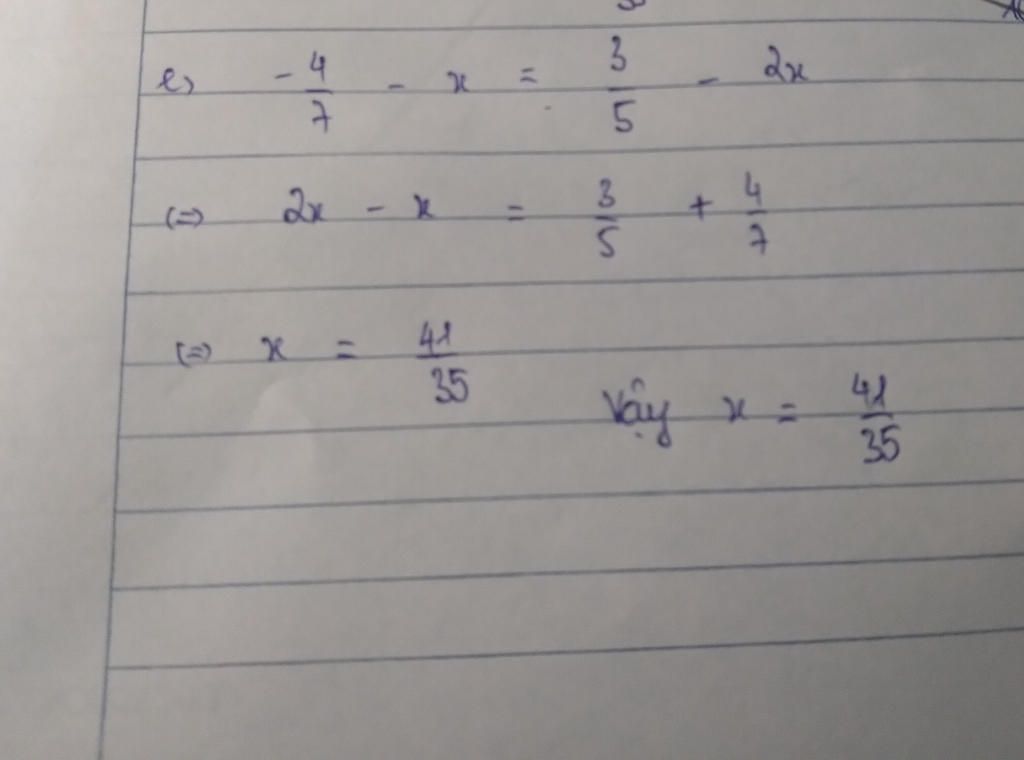 e) -4/7 - x = 3/5 - 2x
(=) 2x - x = 3/5 + 4/7
(=) x = 41/35
Vậy x = 41/35